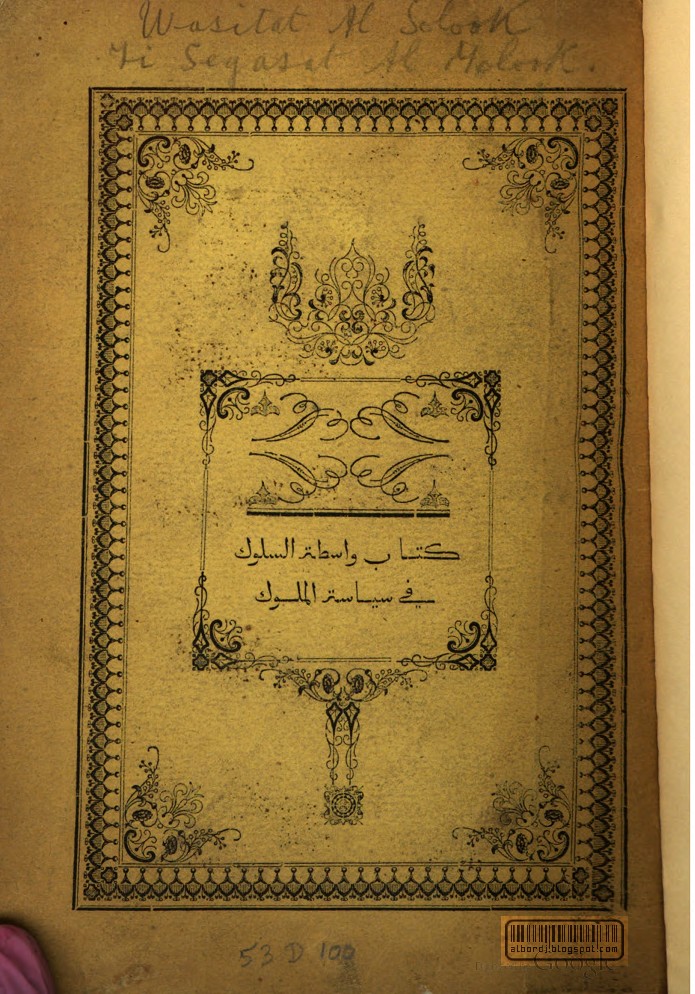 Wasitat Al Solook
Fi Seyasat Al Molook.
كتاب واسطة السلوك
في سياسة الملوك
53 D 100
albordj.blogspot.com
Google